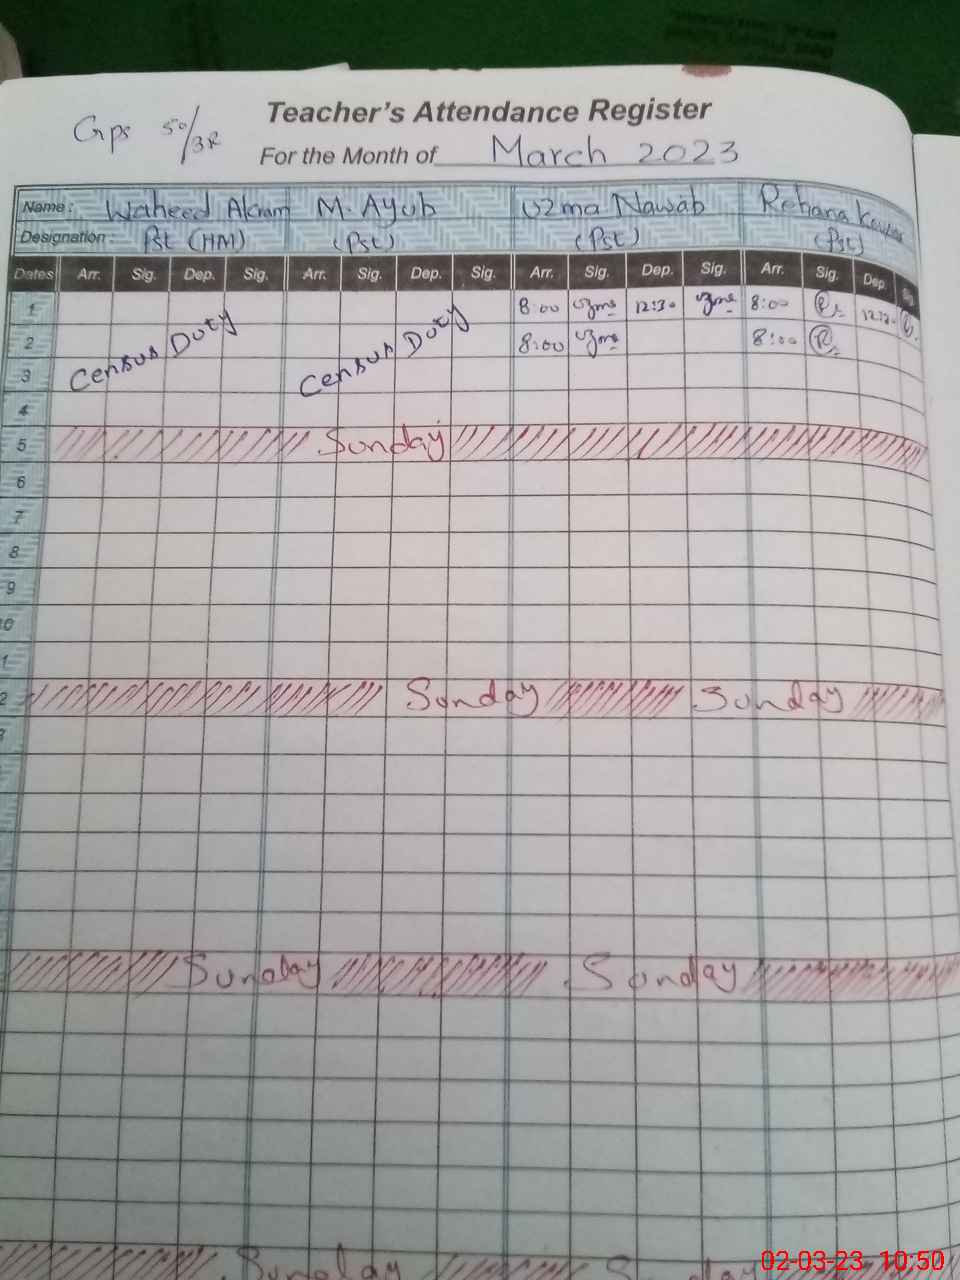 Teacher's Attendance Register
Gps 50/3R
For the Month of March 2023
Name: Waheed Akram M. Ayub Uzma Nawab Rehana Kausar
Designation: Pst (HM) (Pst) (Pst) (Pst)
Dates Arr. Sig. Dep. Sig. Arr. Sig. Dep. Sig. Arr. Sig. Dep. Sig. Arr. Sig. Dep. Sig.
1 8:00 Uzma 12:30 Uzma 8:00 R. 12:30
2 Census Duty Census Duty 8:00 Uzma 8:00 R.
3
4
5 Sunday
6
7
8
9
10
11
12 Sunday Sunday
Sunday Sunday
Sunday Sunday
02-03-23 10:50